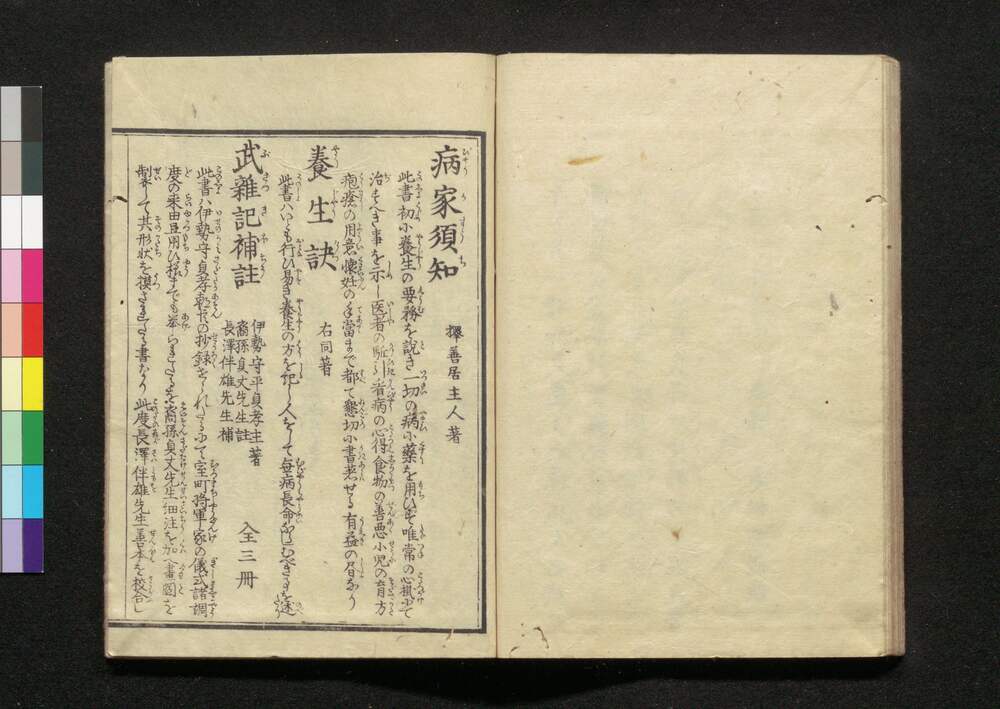 病家須知
擇善居主人著
此書初小養生の要務を説き一切の病小藥を用ひず唯常の心掟少て
治すべき事を示し医者の
看病の心得食物の善悪小児の育方
疱瘡の用意懐妊の手當まで都て懇切小書著せる有益の書なり
養生訣
右同著
此書ハいとも行ひ易き養生の方を記し人をして毎病長命ならしむべきを述
武雜記補註
伊勢守平貞孝主著
裔孫貞丈先生註
長澤伴雄先生補
全三冊
此書ハ伊勢守貞孝
の抄録
て室町将軍家の儀式諸調
度の来由且用ひ様までも
裔孫貞丈先生細注を加へ畫圖を
製して其形状を摸
書なり此度長澤伴雄先生善本を校合し